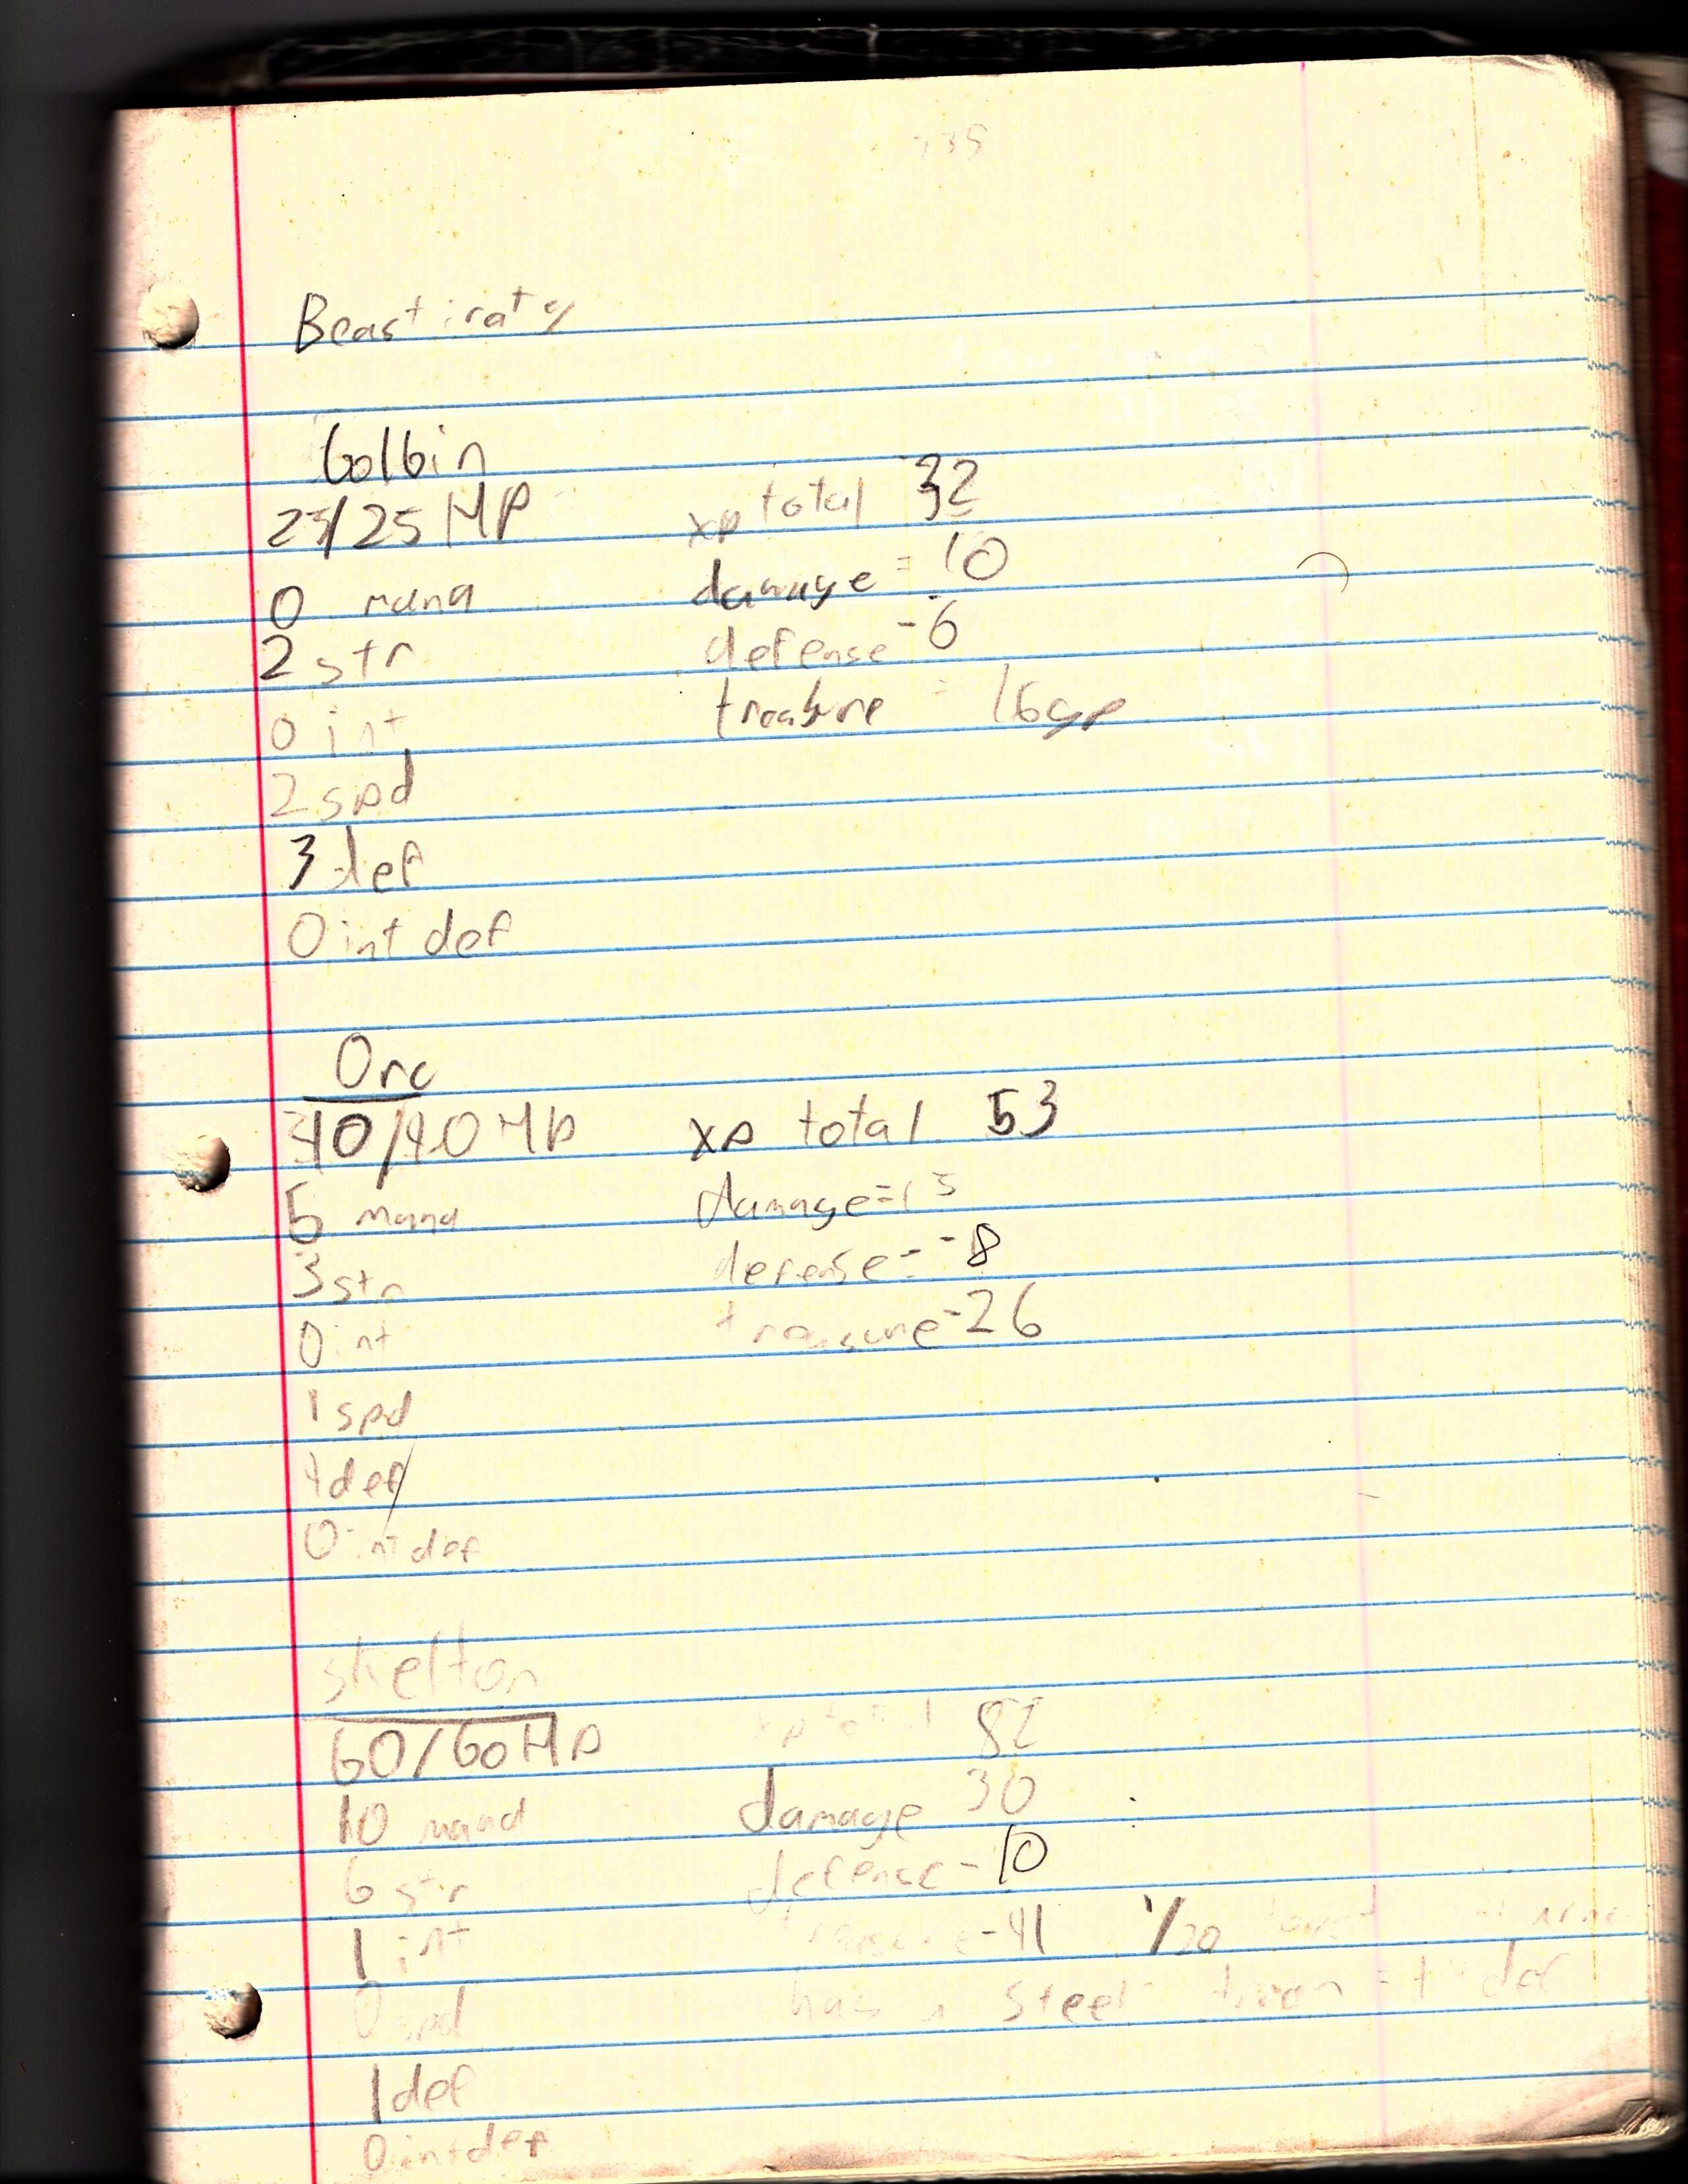 Beastiraty
Golbin
25/25 HP xp total 32
0 mana damage = 10
2 str defense - 6
0 int treasure = 16gp
2 spd
3 def
0 int def
Orc
40/40 HP xp total 53
5 mana damage = 15
3 str defense = - 8
0 int treasure - 26
1 spd
4 def
0 int def
skelton
60/60 HP xp total 82
10 mana damage 30
6 str defense - 10
1 int treasure - 41 1/20
0 spd has a steel def
1 def
0 int def